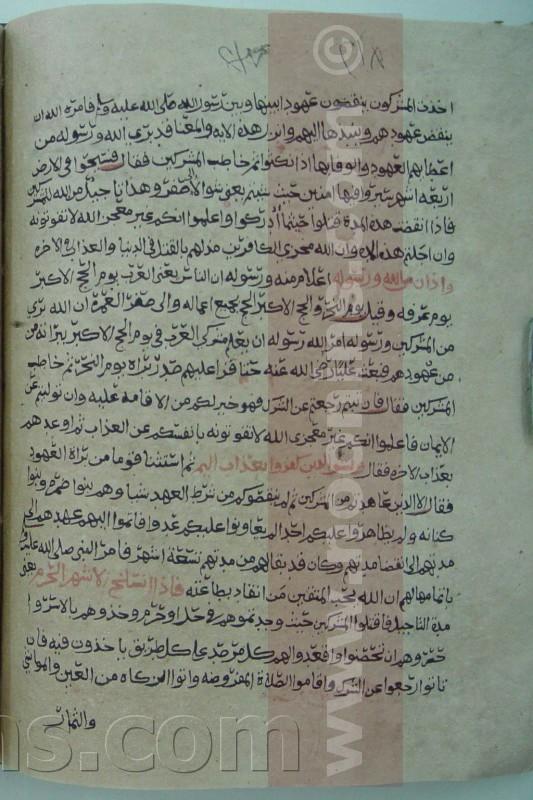 اخذت المشركون ينقضون عهودا بينها وبين رسول الله صلى الله عليه وسلم فامره الله ان
ينقض عهودهم وينبذها اليهم وانزل هذه الاية والمعنا قد برى الله ورسوله من
اعطايهم العهود والوفا بها اذا نكثوا ثم خاطب المشركين فقال فسيحوا فى الارض
اربعة اشهر سيروا فيها امنين حيث شيتم يعنى شوالا الى صفر وهذا تاجيل من الله للمشركين
فاذا انقضت هذه المدة قتلوا حيثما ادركوا واعلموا انكم غير معجزى الله لا تفوتونه
وان اجلتم هذه المدة وان الله مخزى الكافرين مذلهم بالقتل فى الدنيا والعذاب فى الاخرة
واذان من الله ورسوله اعلام منه ورسوله الى الناس يعنى العرب يوم الحج الاكبر
يوم عرفه وقيل يوم النحر والحج الاكبر الحج بجميع اعماله والاصغر العمرة ان الله برى
من المشركين ورسوله امر الله رسوله ان يعلم مشركى العرب فى يوم الحج الاكبر ببراته من
من عهودهم فبعث عليا رضى الله عنه حتى قرا عليهم صدر براة يوم النحر ثم خاطب
المشركين فقال فان تبتم رجعتم عن الشرك فهو خير لكم من الاقامة عليه وان توليتم عن
الايمان فاعلموا انكم غير معجزى الله لا تفوتونه بانفسكم عن العذاب ثم اوعدهم
بعذاب الاخره فقال وبشر الذين كفروا بعذاب اليم ثم استثنا قوما من براة العهود
فقال الا الذين عاهدتم من المشركين ثم لم ينقصوكم من شرط العهد شيا وهم بنوا ضمرة وبنوا
كنانه ولم يظاهروا عليكم احدا لم يعاونوا عليكم عدوا فاتموا اليهم عهدهم الى
مدتهم الى انقضا مدتهم وكان قد بقا لهم من مدتهم تسعة اشهر فامر النبى صلى الله عليه وسلم
باتمامها لهم ان الله يحب المتقين من اتقاه بطاعته فاذا انسلخ الاشهر الحرم يعنى
مدة التاجيل فاقتلوا المشركين حيث وجدتموهم فى حل او حرم وخذوهم بالاسر وا
حصروهم ان تحصنوا واقعدوا لهم كل مرصد على كل طريق ياخذون فيه فان
تابوا رجعوا عن الشرك واقاموا الصلاة المفروضه واتوا الزكاه من العين والمواشى
والثمار
www.
ms.com
©